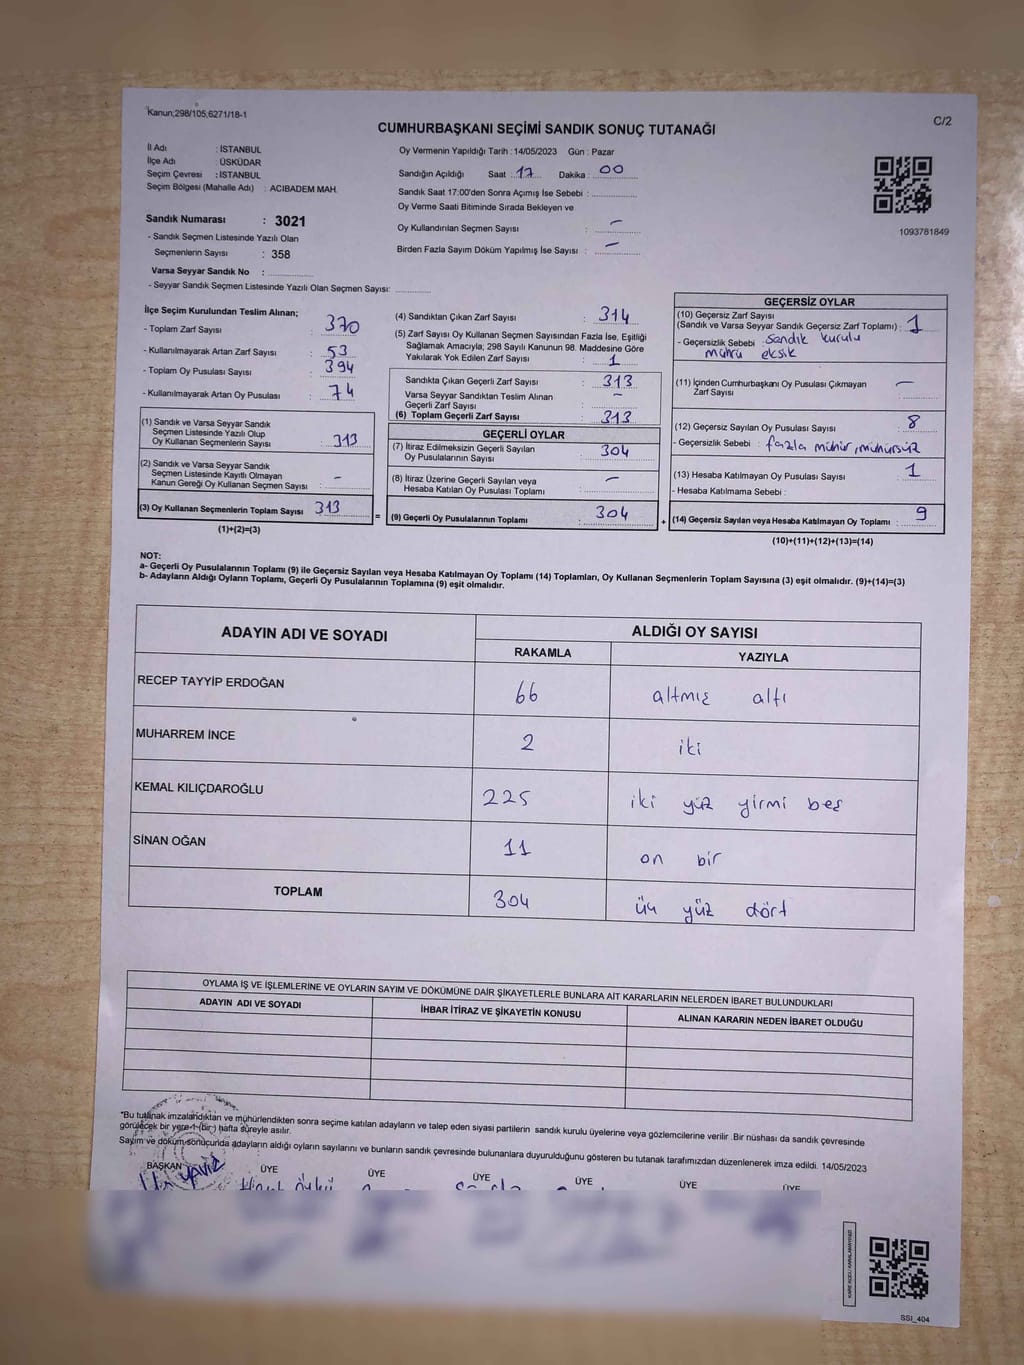 Kanun;298/105,6271/18-1
C/2
CUMHURBAŞKANI SEÇİMİ SANDIK SONUÇ TUTANAĞI
İl Adı : İSTANBUL
İlçe Adı : ÜSKÜDAR
Seçim Çevresi : İSTANBUL
Seçim Bölgesi (Mahalle Adı) : ACIBADEM MAH.
Sandık Numarası : 3021
- Sandık Seçmen Listesinde Yazılı Olan
Seçmenlerin Sayısı : 358
Varsa Seyyar Sandık No :
- Seyyar Sandık Seçmen Listesinde Yazılı Olan Seçmen Sayısı:
Oy Vermenin Yapıldığı Tarih : 14/05/2023 Gün : Pazar
Sandığın Açıldığı Saat : 17 Dakika : 00
Sandık Saat 17:00'den Sonra Açımış İse Sebebi :
Oy Verme Saati Bitiminde Sırada Bekleyen ve
Oy Kullandırılan Seçmen Sayısı : –
Birden Fazla Sayım Döküm Yapılmış İse Sayısı : –
1093781849
İlçe Seçim Kurulundan Teslim Alınan;
- Toplam Zarf Sayısı : 370
- Kullanılmayarak Artan Zarf Sayısı : 53
- Toplam Oy Pusulası Sayısı : 394
- Kullanılmayarak Artan Oy Pusulası : 74
(1) Sandık ve Varsa Seyyar Sandık
Seçmen Listesinde Yazılı Olup
Oy Kullanan Seçmenlerin Sayısı : 313
(2) Sandık ve Varsa Seyyar Sandık
Seçmen Listesinde Kayıtlı Olmayan
Kanun Gereği Oy Kullanan Seçmen Sayısı : –
(3) Oy Kullanan Seçmenlerin Toplam Sayısı 313
(1)+(2)=(3)
=
(4) Sandıktan Çıkan Zarf Sayısı : 314
(5) Zarf Sayısı Oy Kullanan Seçmen Sayısından Fazla İse, Eşitliği
Sağlamak Amacıyla; 298 Sayılı Kanunun 98. Maddesine Göre
Yakılarak Yok Edilen Zarf Sayısı : 1
Sandıkta Çıkan Geçerli Zarf Sayısı : 313
Varsa Seyyar Sandıktan Teslim Alınan
Geçerli Zarf Sayısı : –
(6) Toplam Geçerli Zarf Sayısı : 313
GEÇERLİ OYLAR
(7) İtiraz Edilmeksizin Geçerli Sayılan
Oy Pusulalarının Sayısı : 304
(8) İtiraz Üzerine Geçerli Sayılan veya
Hesaba Katılan Oy Pusulası Toplamı : –
(9) Geçerli Oy Pusulalarının Toplamı : 304
+
GEÇERSİZ OYLAR
(10) Geçersiz Zarf Sayısı
(Sandık ve Varsa Seyyar Sandık Geçersiz Zarf Toplamı) : 1
- Geçersizlik Sebebi : Sandık kurulu
mührü eksik
(11) İçinden Cumhurbaşkanı Oy Pusulası Çıkmayan
Zarf Sayısı : –
(12) Geçersiz Sayılan Oy Pusulası Sayısı : 8
- Geçersizlik Sebebi : fazla mühür, mühürsüz
(13) Hesaba Katılmayan Oy Pusulası Sayısı : 1
- Hesaba Katılmama Sebebi :
(14) Geçersiz Sayılan veya Hesaba Katılmayan Oy Toplamı : 9
(10)+(11)+(12)+(13)=(14)
NOT:
a- Geçerli Oy Pusulalarının Toplamı (9) ile Geçersiz Sayılan veya Hesaba Katılmayan Oy Toplamı (14) Toplamları, Oy Kullanan Seçmenlerin Toplam Sayısına (3) eşit olmalıdır. (9)+(14)=(3)
b- Adayların Aldığı Oyların Toplamı, Geçerli Oy Pusulalarının Toplamına (9) eşit olmalıdır.
ADAYIN ADI VE SOYADI ALDIĞI OY SAYISI
RAKAMLA YAZIYLA
RECEP TAYYİP ERDOĞAN 66 altmış altı
MUHARREM İNCE 2 iki
KEMAL KILIÇDAROĞLU 225 iki yüz yirmi beş
SİNAN OĞAN 11 on bir
TOPLAM 304 üç yüz dört
OYLAMA İŞ VE İŞLEMLERİNE VE OYLARIN SAYIM VE DÖKÜMÜNE DAİR ŞİKAYETLERLE BUNLARA AİT KARARLARIN NELERDEN İBARET BULUNDUKLARI
ADAYIN ADI VE SOYADI İHBAR İTİRAZ VE ŞİKAYETİN KONUSU ALINAN KARARIN NEDEN İBARET OLDUĞU
*Bu tutanak imzalandıktan ve mühürlendikten sonra seçime katılan adayların ve talep eden siyasi partilerin sandık kurulu üyelerine veya gözlemcilerine verilir. Bir nüshası da sandık çevresinde
görülecek bir yere 1 (bir) hafta süreyle asılır.
Sayım ve döküm sonuçunda adayların aldığı oyların sayılarını ve bunların sandık çevresinde bulunanlara duyurulduğunu gösteren bu tutanak tarafımızdan düzenlenerek imza edildi. 14/05/2023
BAŞKAN ÜYE ÜYE ÜYE ÜYE ÜYE ÜYE
YAVUZ
KARE KODU KARALAMAYINIZ!
SSI_404